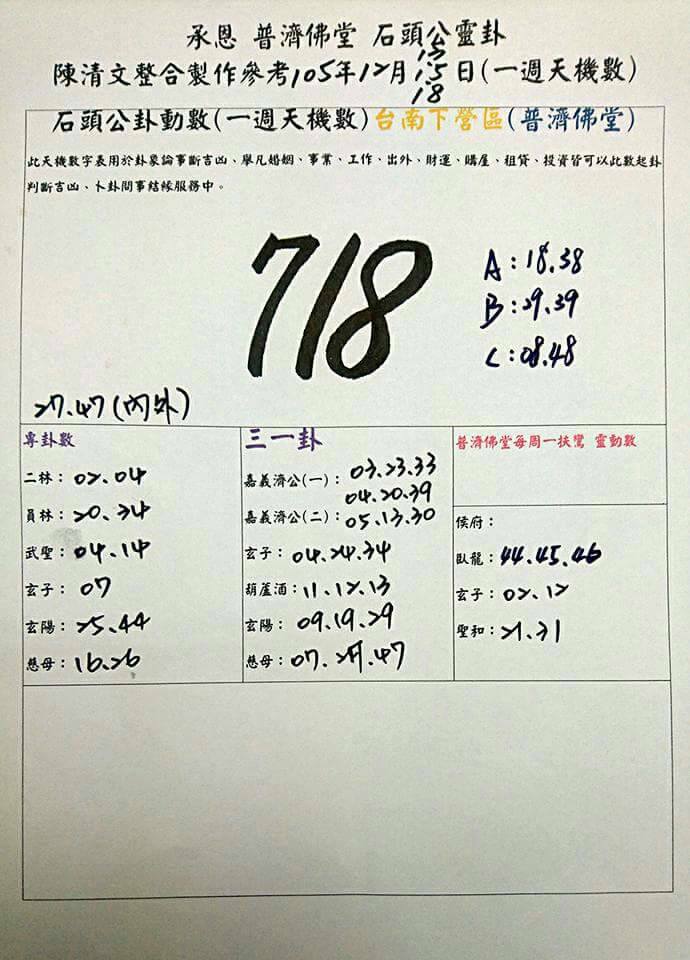 承恩 普濟佛堂 石頭公靈卦
13
陳清文整合製作參考105年12月15日(一週天機數)
18
石頭公卦動數(一週天機數)台南下營區(普濟佛堂)
此天機數字表用於卦象論事斷吉凶、舉凡婚姻、事業、工作、出外、財運、購屋、租貸、投資皆可以此數起卦
判斷吉凶、卜卦問事結緣服務中。
718
A:18.38
B:29.39
C:08.48
27.47(內外)
專卦數
二林:02.04
員林:20.34
武聖:04.14
玄子:07
玄陽:25.44
慈母:16.26
三一卦
嘉義濟公(一):03.23.33
04.20.39
嘉義濟公(二):05.13.30
玄子:04.24.34
葫蘆酒:11.12.13
玄陽:09.19.29
慈母:07.27.47
普濟佛堂每周一扶鸞 靈動數
侯府:
臥龍:44.45.46
玄子:02.12
聖和:21.31